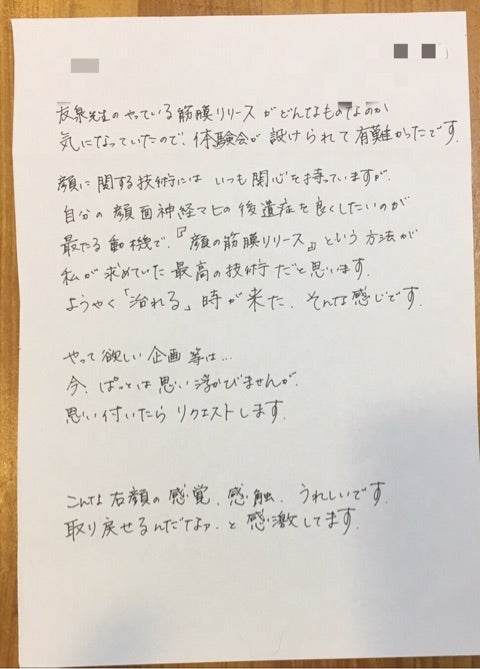 友泉先生のやっている筋膜リリースがどんなものなのか
気になっていたので、体験会が設けられて有難かったです。
顔に関する技術にはいつも関心を持っていますが、
自分の顔面神経マヒの後遺症を良くしたいのが
最たる動機で、『顔の筋膜リリース』という方法が
私が求めていた最高の技術だと思います。
ようやく「治れる」時が来た、そんな感じです。
やって欲しい企画等は…
今、ぱっとは思い浮かびませんが、
思い付いたらリクエストします。
こんな右顔の感覚、感触、うれしいです。
取り戻せるんだなァ、と感激してます。